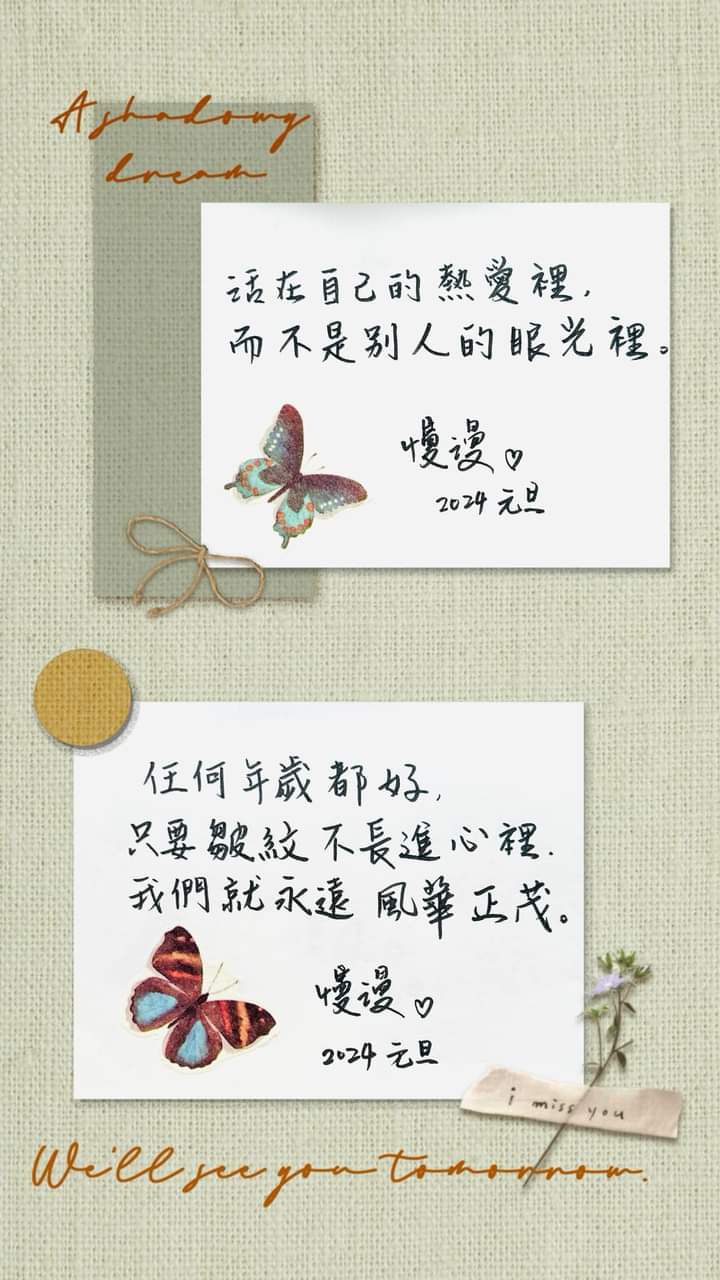 A shadowy
dream
活在自己的熱愛裡,
而不是別人的眼光裡。
慢漫♡
2024 元旦
任何年歲都好,
只要皺紋不長進心裡.
我們就永遠 風華正茂。
慢漫♡
2024 元旦
i miss you
We'll see you tomorrow.